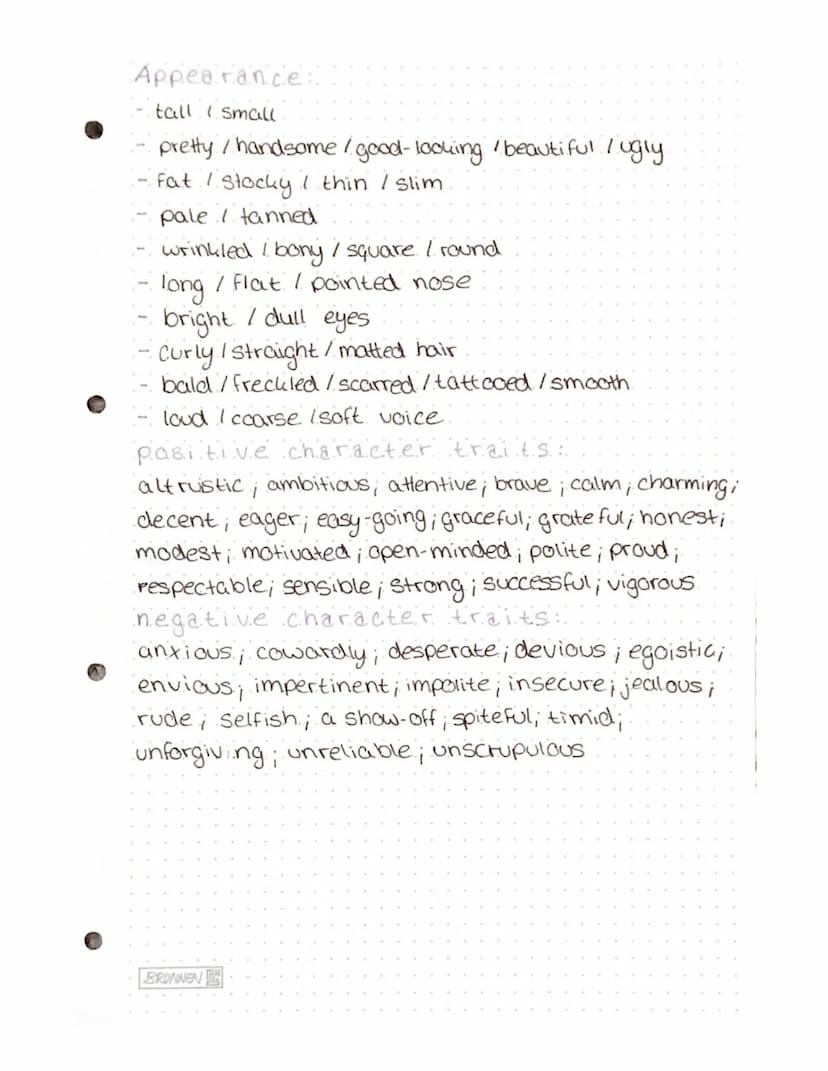 Appearance:
- tall / small
- pretty / handsome / good-looking / beautiful / ugly
- fat / stocky / thin / slim
- pale / tanned
- wrinkled / bony / square / round
- long / flat / pointed nose
- bright / dull eyes
- curly / straight / matted hair
- bald / freckled / scarred / tattooed / smooth
- loud / coarse / soft voice
positive character traits:
altrustic ; ambitious ; attentive ; brave ; calm ; charming ;
decent ; eager ; easy-going ; graceful ; grateful ; honest ;
modest ; motivated ; open-minded ; polite ; proud ;
respectable ; sensible ; strong ; successful ; vigorous
negative character traits:
anxious ; cowardly ; desperate ; devious ; egoistic ;
envious ; impertinent ; impolite ; insecure ; jealous ;
rude ; selfish ; a show-off ; spiteful ; timid ;
unforgiving ; unreliable ; unscrupulous
BRUNNEN